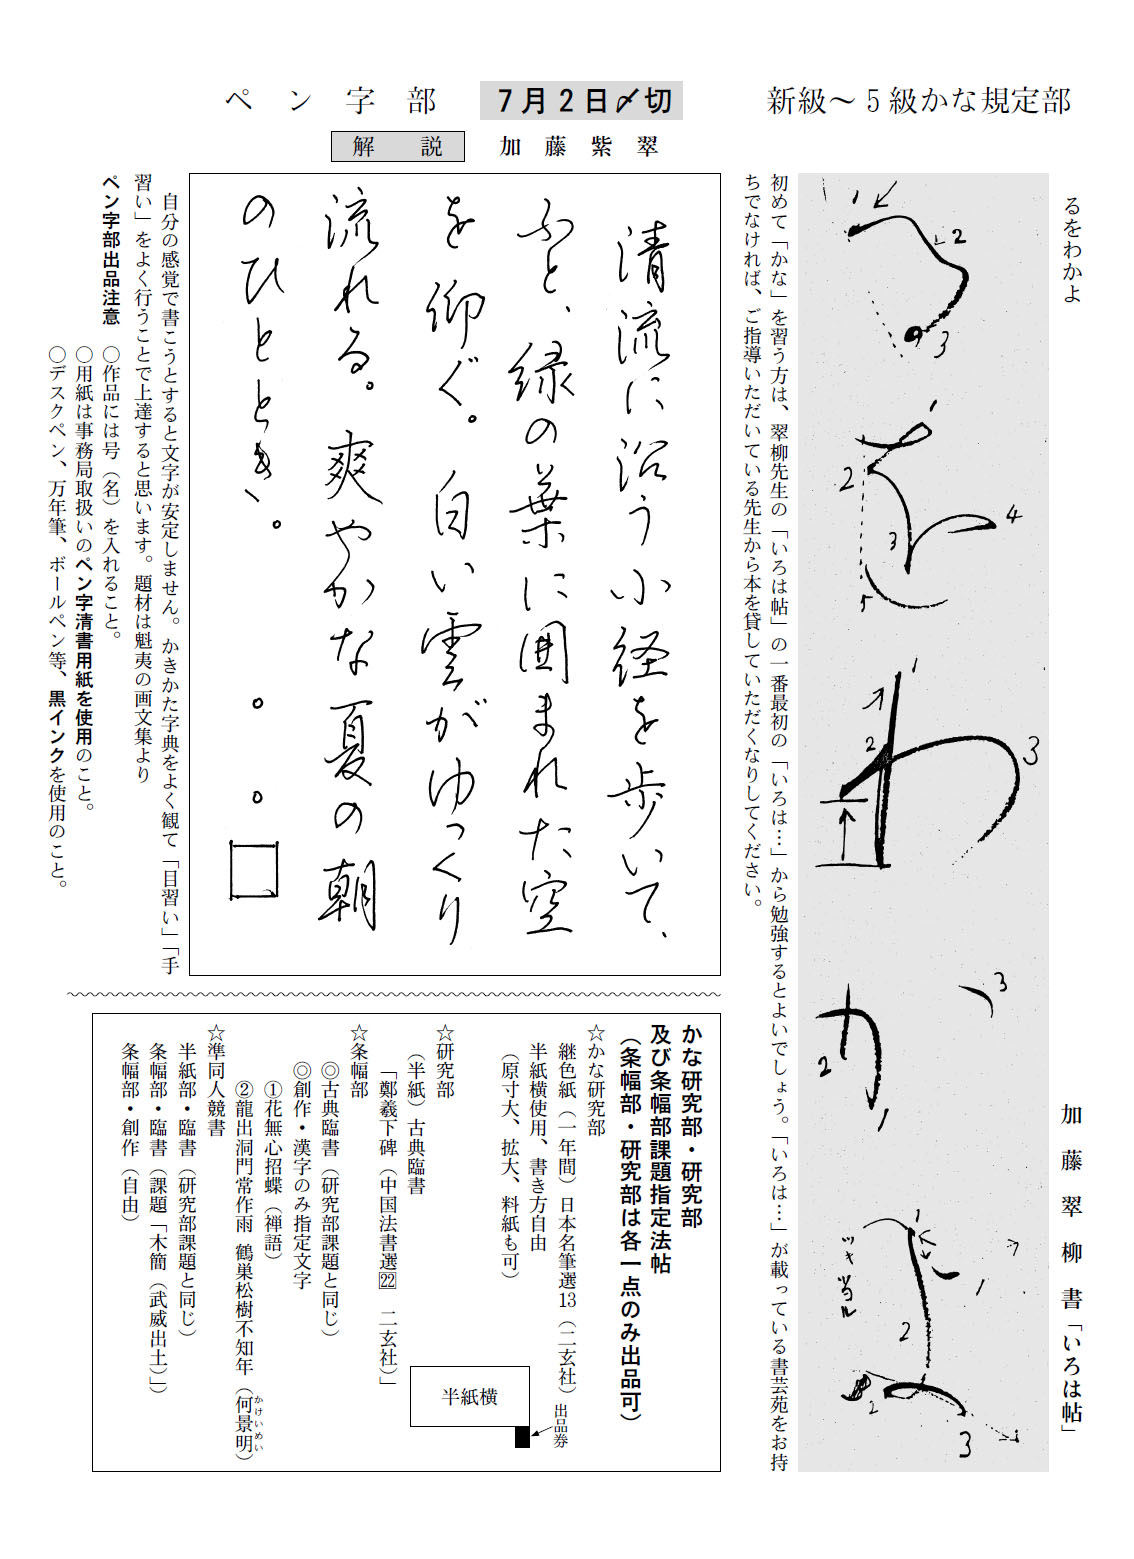 新級〜5級かな規定部
るをわかよ
加藤翠柳書「いろは帖」
1
2
3
1
2
3
4
5
1
2
3
3
2
1
1
1
2
ツキ当ル
2
3
初めて「かな」を習う方は、翠柳先生の「いろは帖」の一番最初の「いろは…」から勉強するとよいでしょう。「いろは…」が載っている書芸苑をお持
ちでなければ、ご指導いただいている先生から本を貸していただくなりしてください。
ペン字部
7月2日〆切
解説
加藤紫翠
清流に沿う小経を歩いて、
ふと、緑の葉に囲まれた空
を仰ぐ。白い雲がゆっくり
流れる。爽やかな夏の朝
のひととき、。
自分の感覚で書こうとすると文字が安定しません。かきかた字典をよく観て「目習い」「手
習い」をよく行うことで上達すると思います。題材は魁夷の画文集より
ペン字部出品注意 〇作品には号（名）を入れること。
〇用紙は事務局取扱いのペン字清書用紙を使用のこと。
〇デスクペン、万年筆、ボールペン等、黒インクを使用のこと。
かな研究部・研究部
及び条幅部課題指定法帖
（条幅部・研究部は各一点のみ出品可）
☆かな研究部
継色紙（一年間）日本名筆選13（二玄社）
半紙横使用、書き方自由
（原寸大、拡大、料紙も可）
出品券
半紙横
☆研究部
（半紙）古典臨書
「鄭羲下碑（中国法書選22 二玄社）」
☆条幅部
◎古典臨書（研究部課題と同じ）
◎創作・漢字のみ指定文字
①花無心招蝶（禅語）
②龍出洞門常作雨 鶴巣松樹不知年（何景明）
かけいめい
☆準同人競書
半紙部・臨書（研究部課題と同じ）
条幅部・臨書（課題「木簡（武威出土）」）
条幅部・創作（自由）